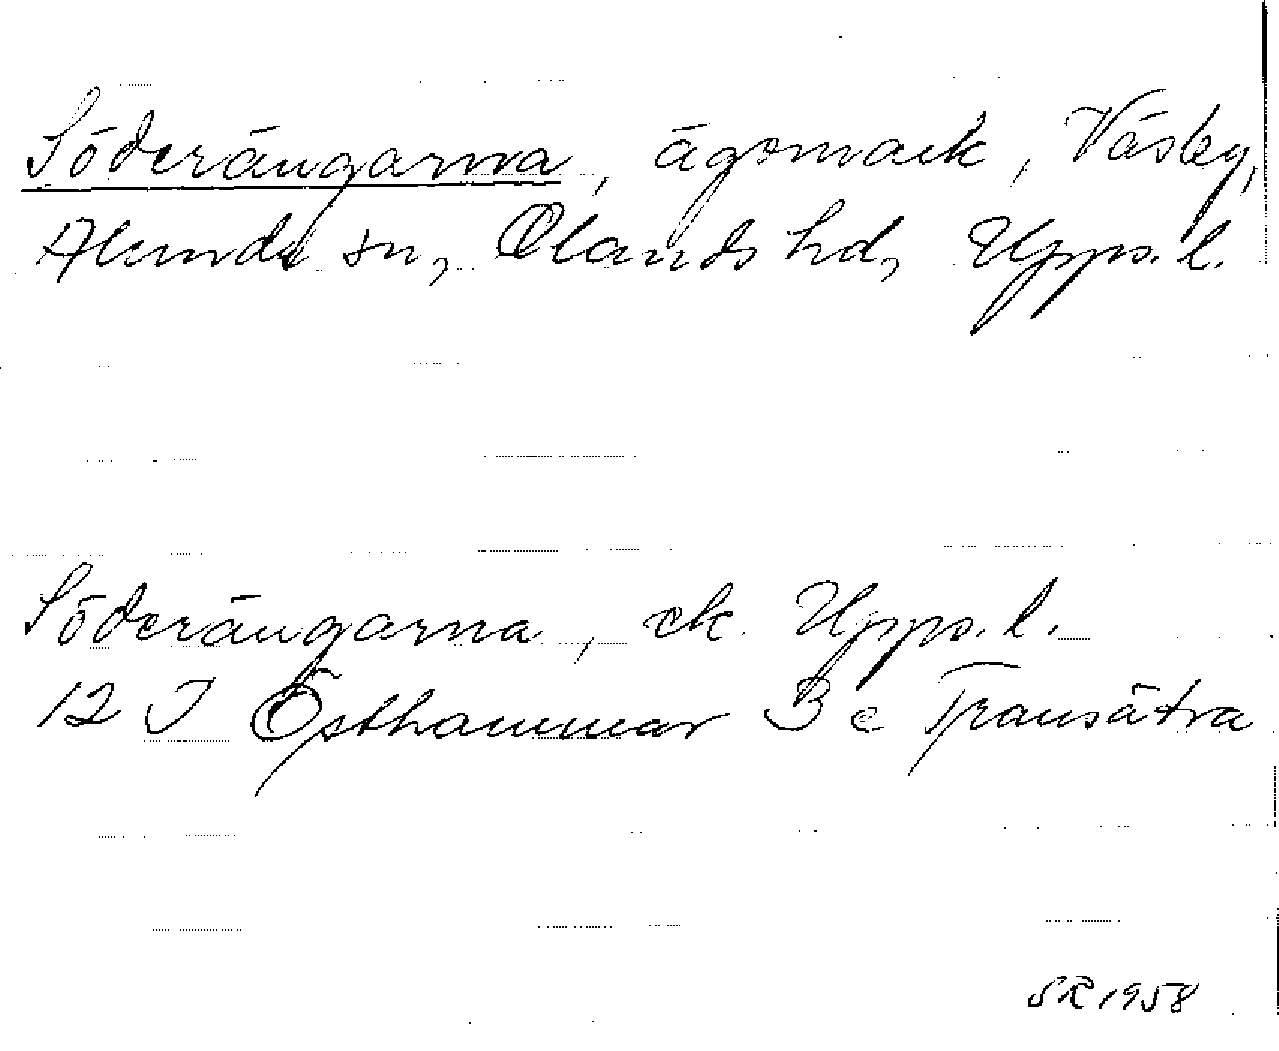 Söderängarna, ägomark, Väsby,
Alunda sn, Olands hd, Upps. l.
Söderängarna, ek. Upps. l.
12 I Östhammar 3 e Transätra
SR 1958